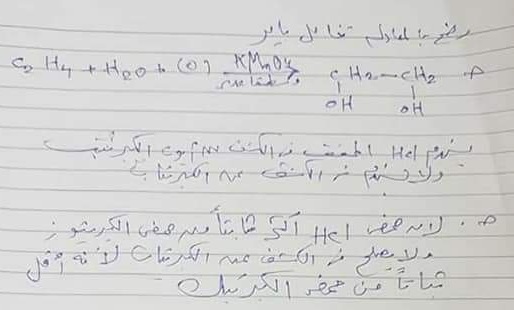 وضح بالمعادلة تفاعل باير
C2H4 + H2O + (O) KMnO4 CH2-CH2
OH OH
يستخدم HCl المخفف في الكشف عن الكبريتيت
ولا يستخدم في الكشف عن الكبريتات
ج. لان حمض HCl أكثر ثباتاً من حمض الكبريتوز
ولا يصلح في الكشف عن الكبريتات لأنه أقل
ثباتاً من حمض الكبريتيك